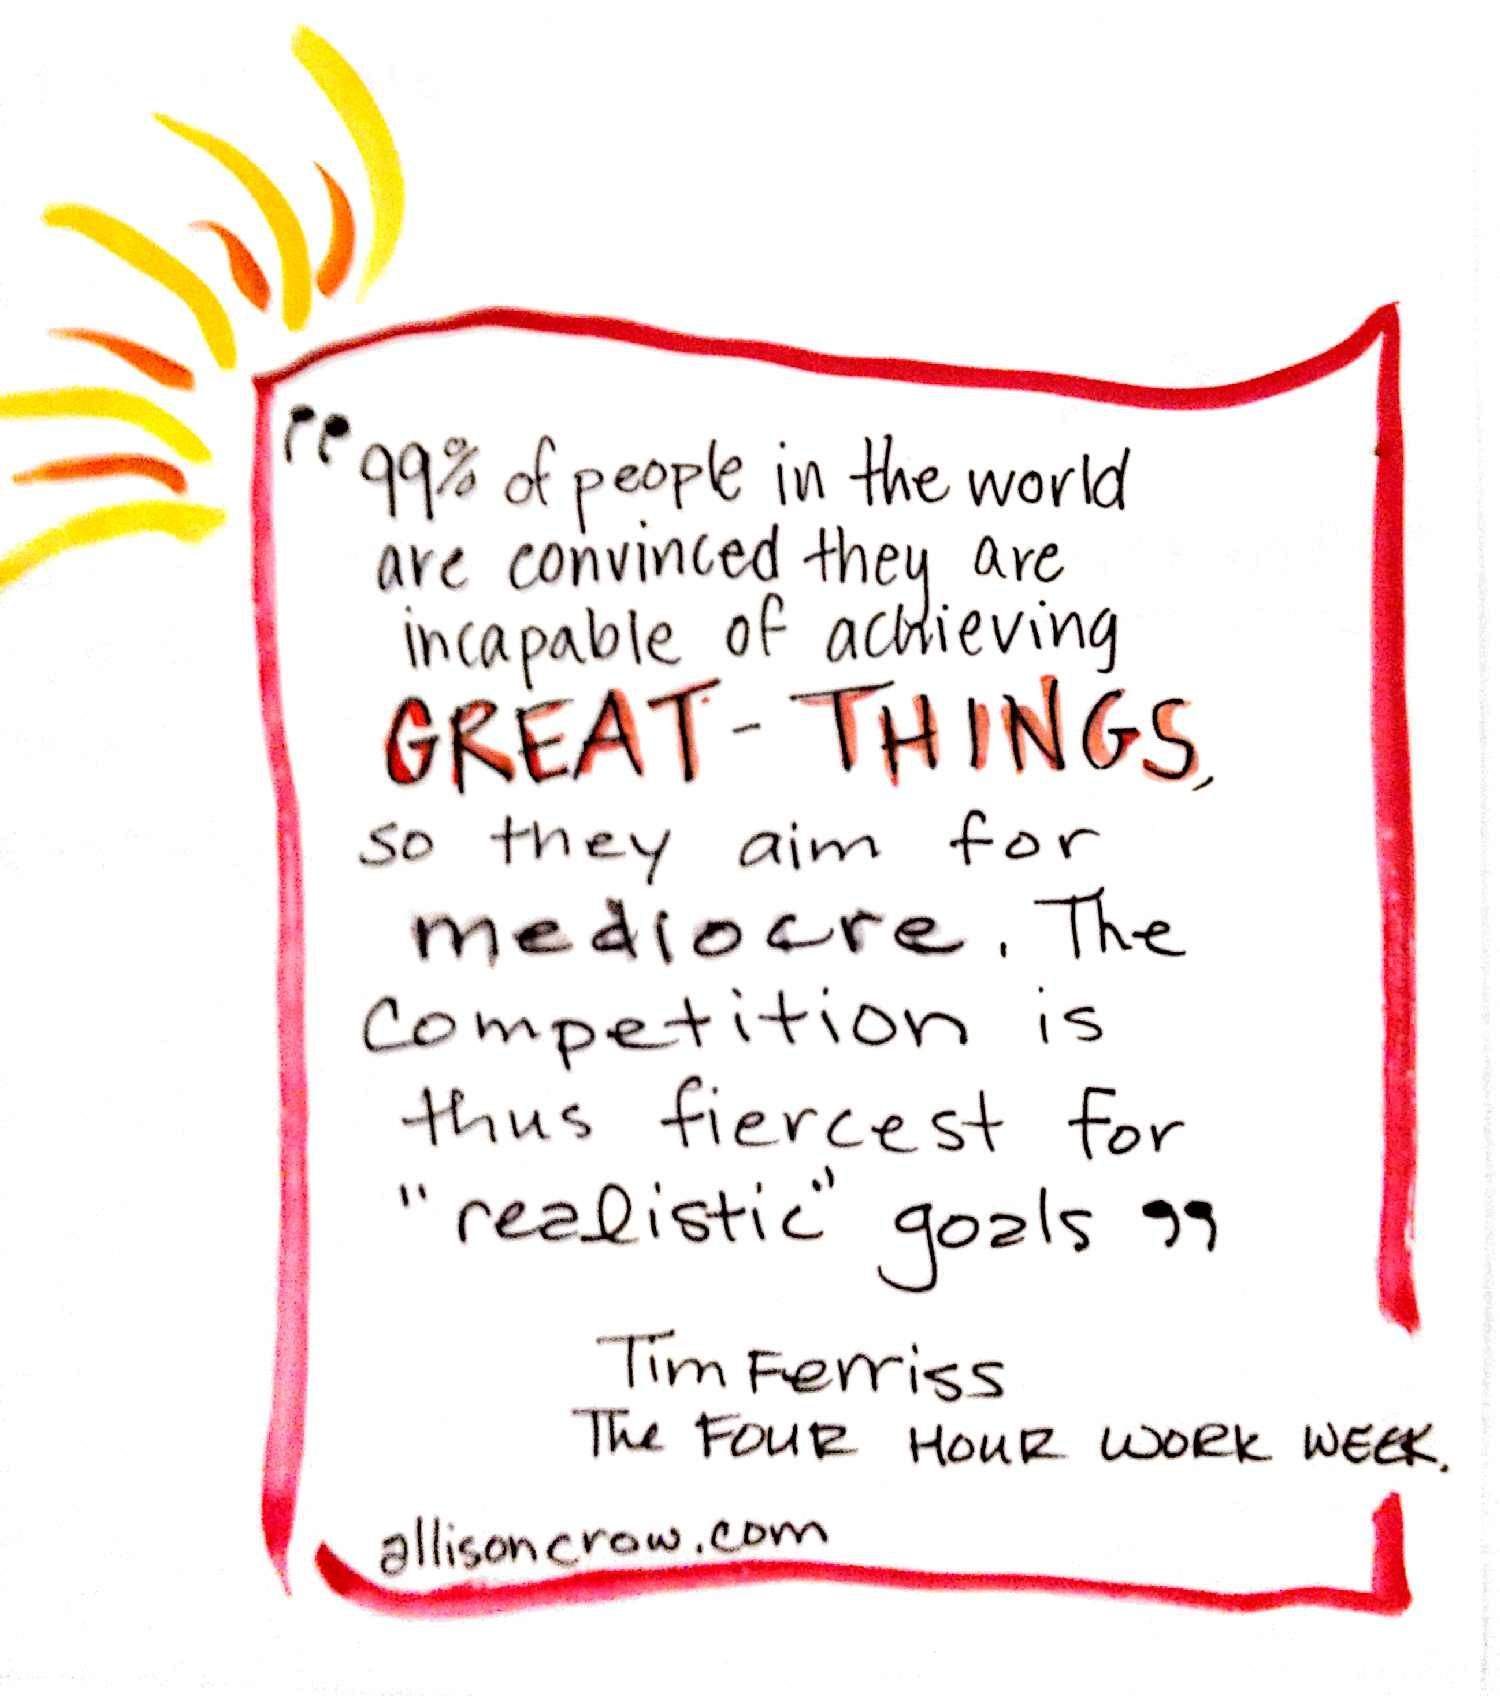 "99% of people in the world
are convinced they are
incapable of achieving
GREAT-THINGS,
so they aim for
mediocre. The
competition is
thus fiercest for
"realistic" goals"
Tim Ferriss
The FOUR HOUR WORK WEEK.
allisoncrow.com